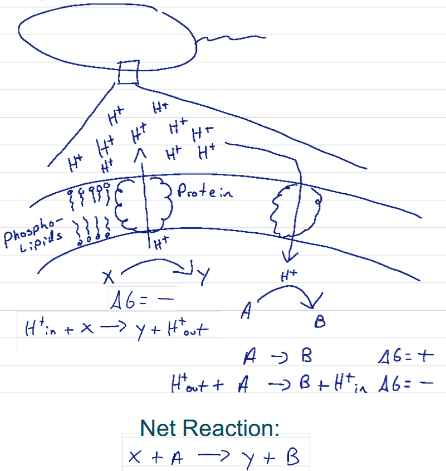 H⁺ H⁺
H⁺ H⁺ H⁺
H⁺ H⁺ H⁺ H⁺ H⁺
Protein
Phospho-
Lipids
H⁺
H⁺
X Y
ΔG = -
A B
H⁺in + X → Y + H⁺out
A → B ΔG = +
H⁺out + A → B + H⁺in ΔG = -
Net Reaction:
X + A → Y + B